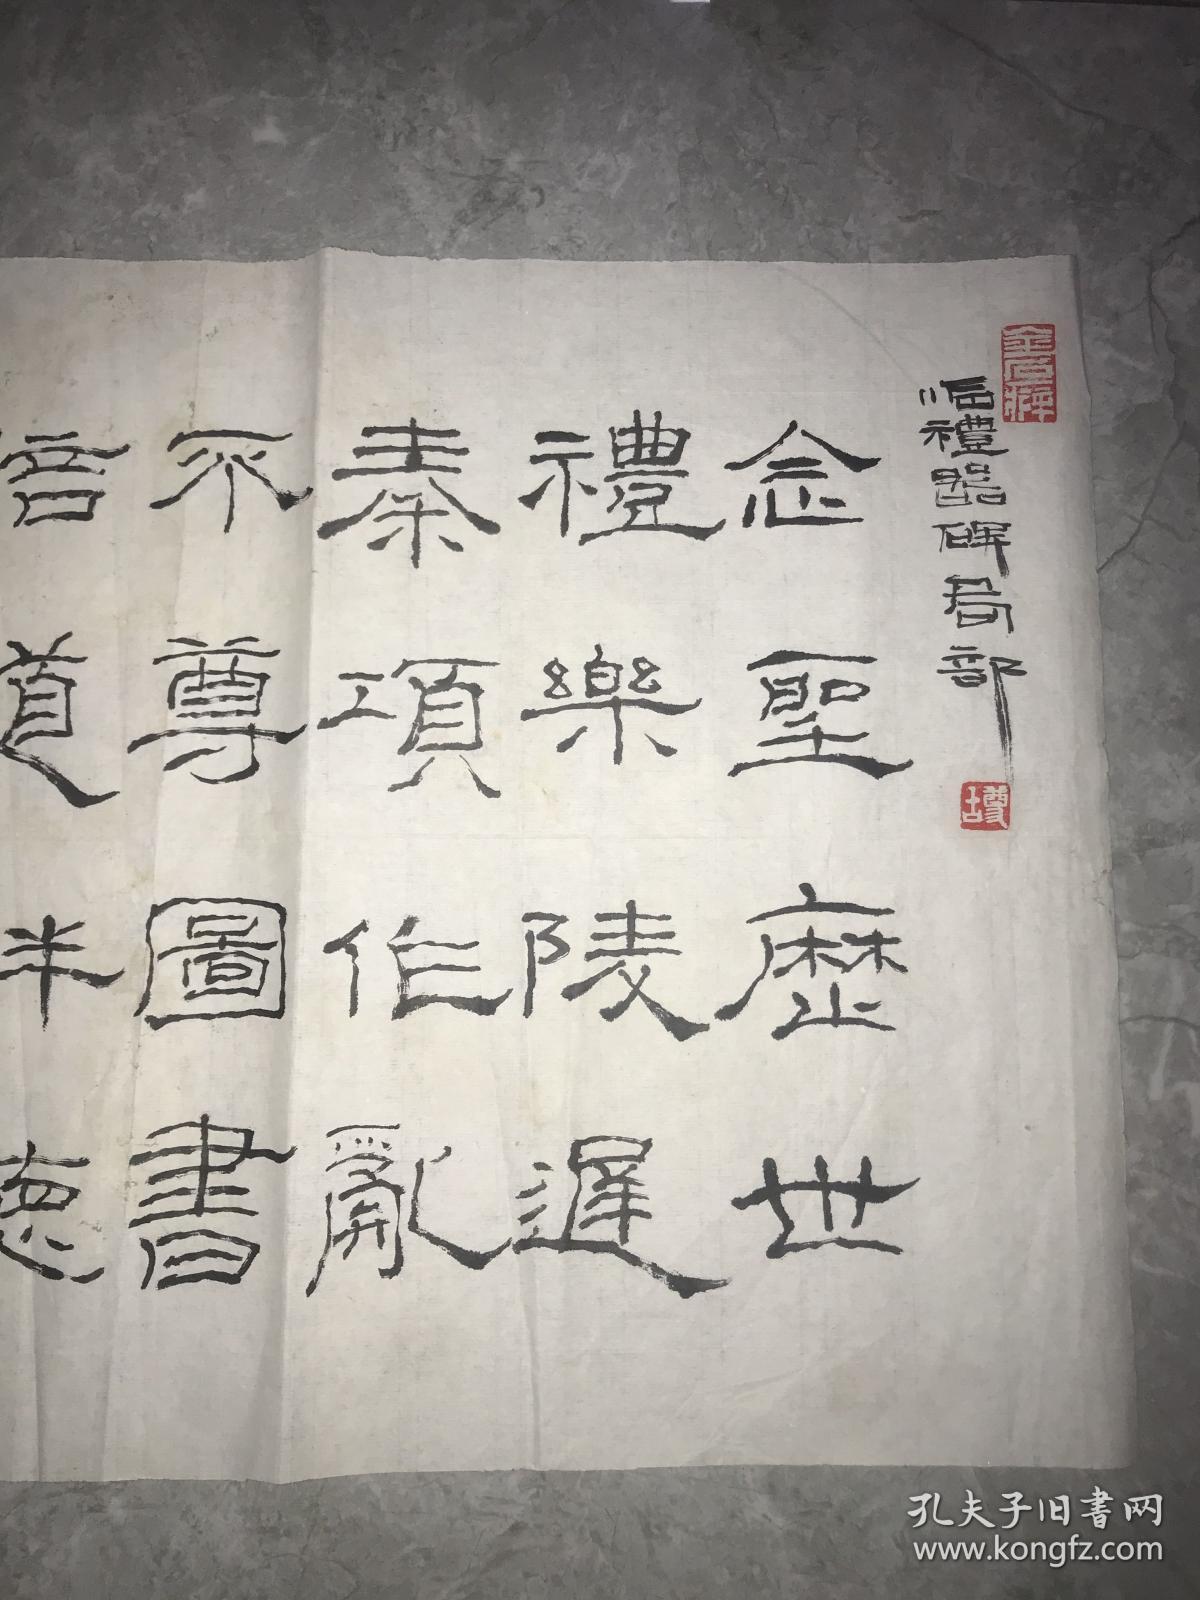 臨禮器碑局部
念聖歷世
禮樂陵遲
秦項作亂
不尊圖書
倍道畔德
孔夫子旧书网
www.kongfz.com